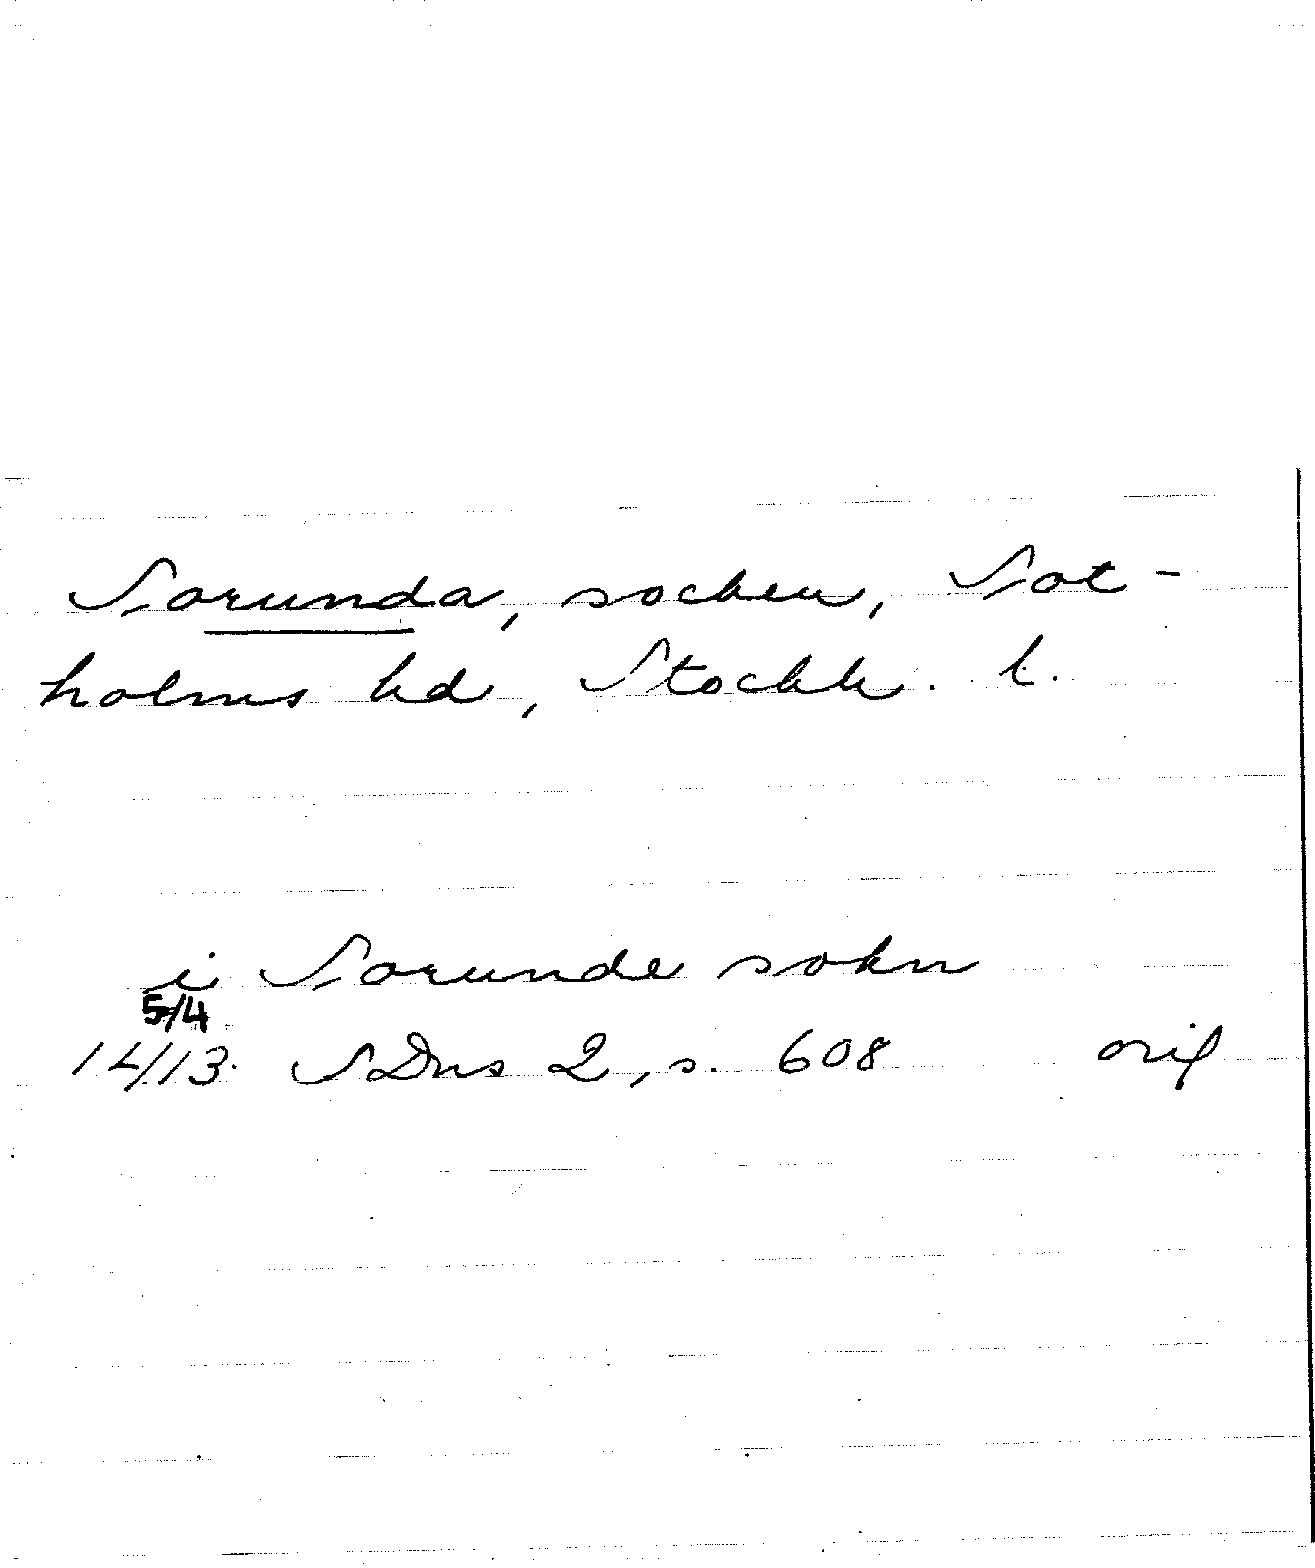 Sorunda, socken, Sot-
holms hd, Stockh. l.
i Sorunde sokn
5/4
1413. SDns 2, s. 608 orig